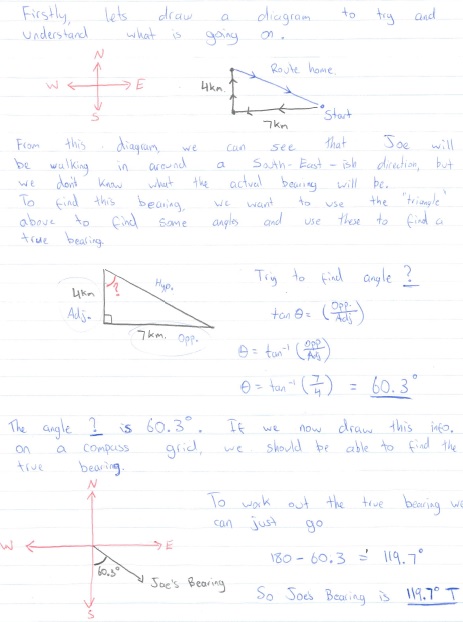 Firstly, lets draw a diagram to try and
understand what is going on.
N
W E
S
4km
Route home.
Start
7km
From this diagram, we can see that Joe will
be walking in around a South-East-ish direction, but
we don't know what the actual bearing will be.
To find this bearing, we want to use the "triangle"
above to find some angles and use these to find a
true bearing.
4km
Adj.
?
Hyp.
7km. Opp.
Try to find angle ?
tan θ = (Opp./Adj)
θ = tan⁻¹ (Opp/Adj)
θ = tan⁻¹ (7/4) = 60.3°
The angle ? is 60.3°. If we now draw this info.
on a compass grid, we should be able to find the
true bearing.
N
W E
60.3°
Joe's Bearing
S
To work out the true bearing we
can just go
180 - 60.3 = 119.7°
So Joe's Bearing is 119.7° T